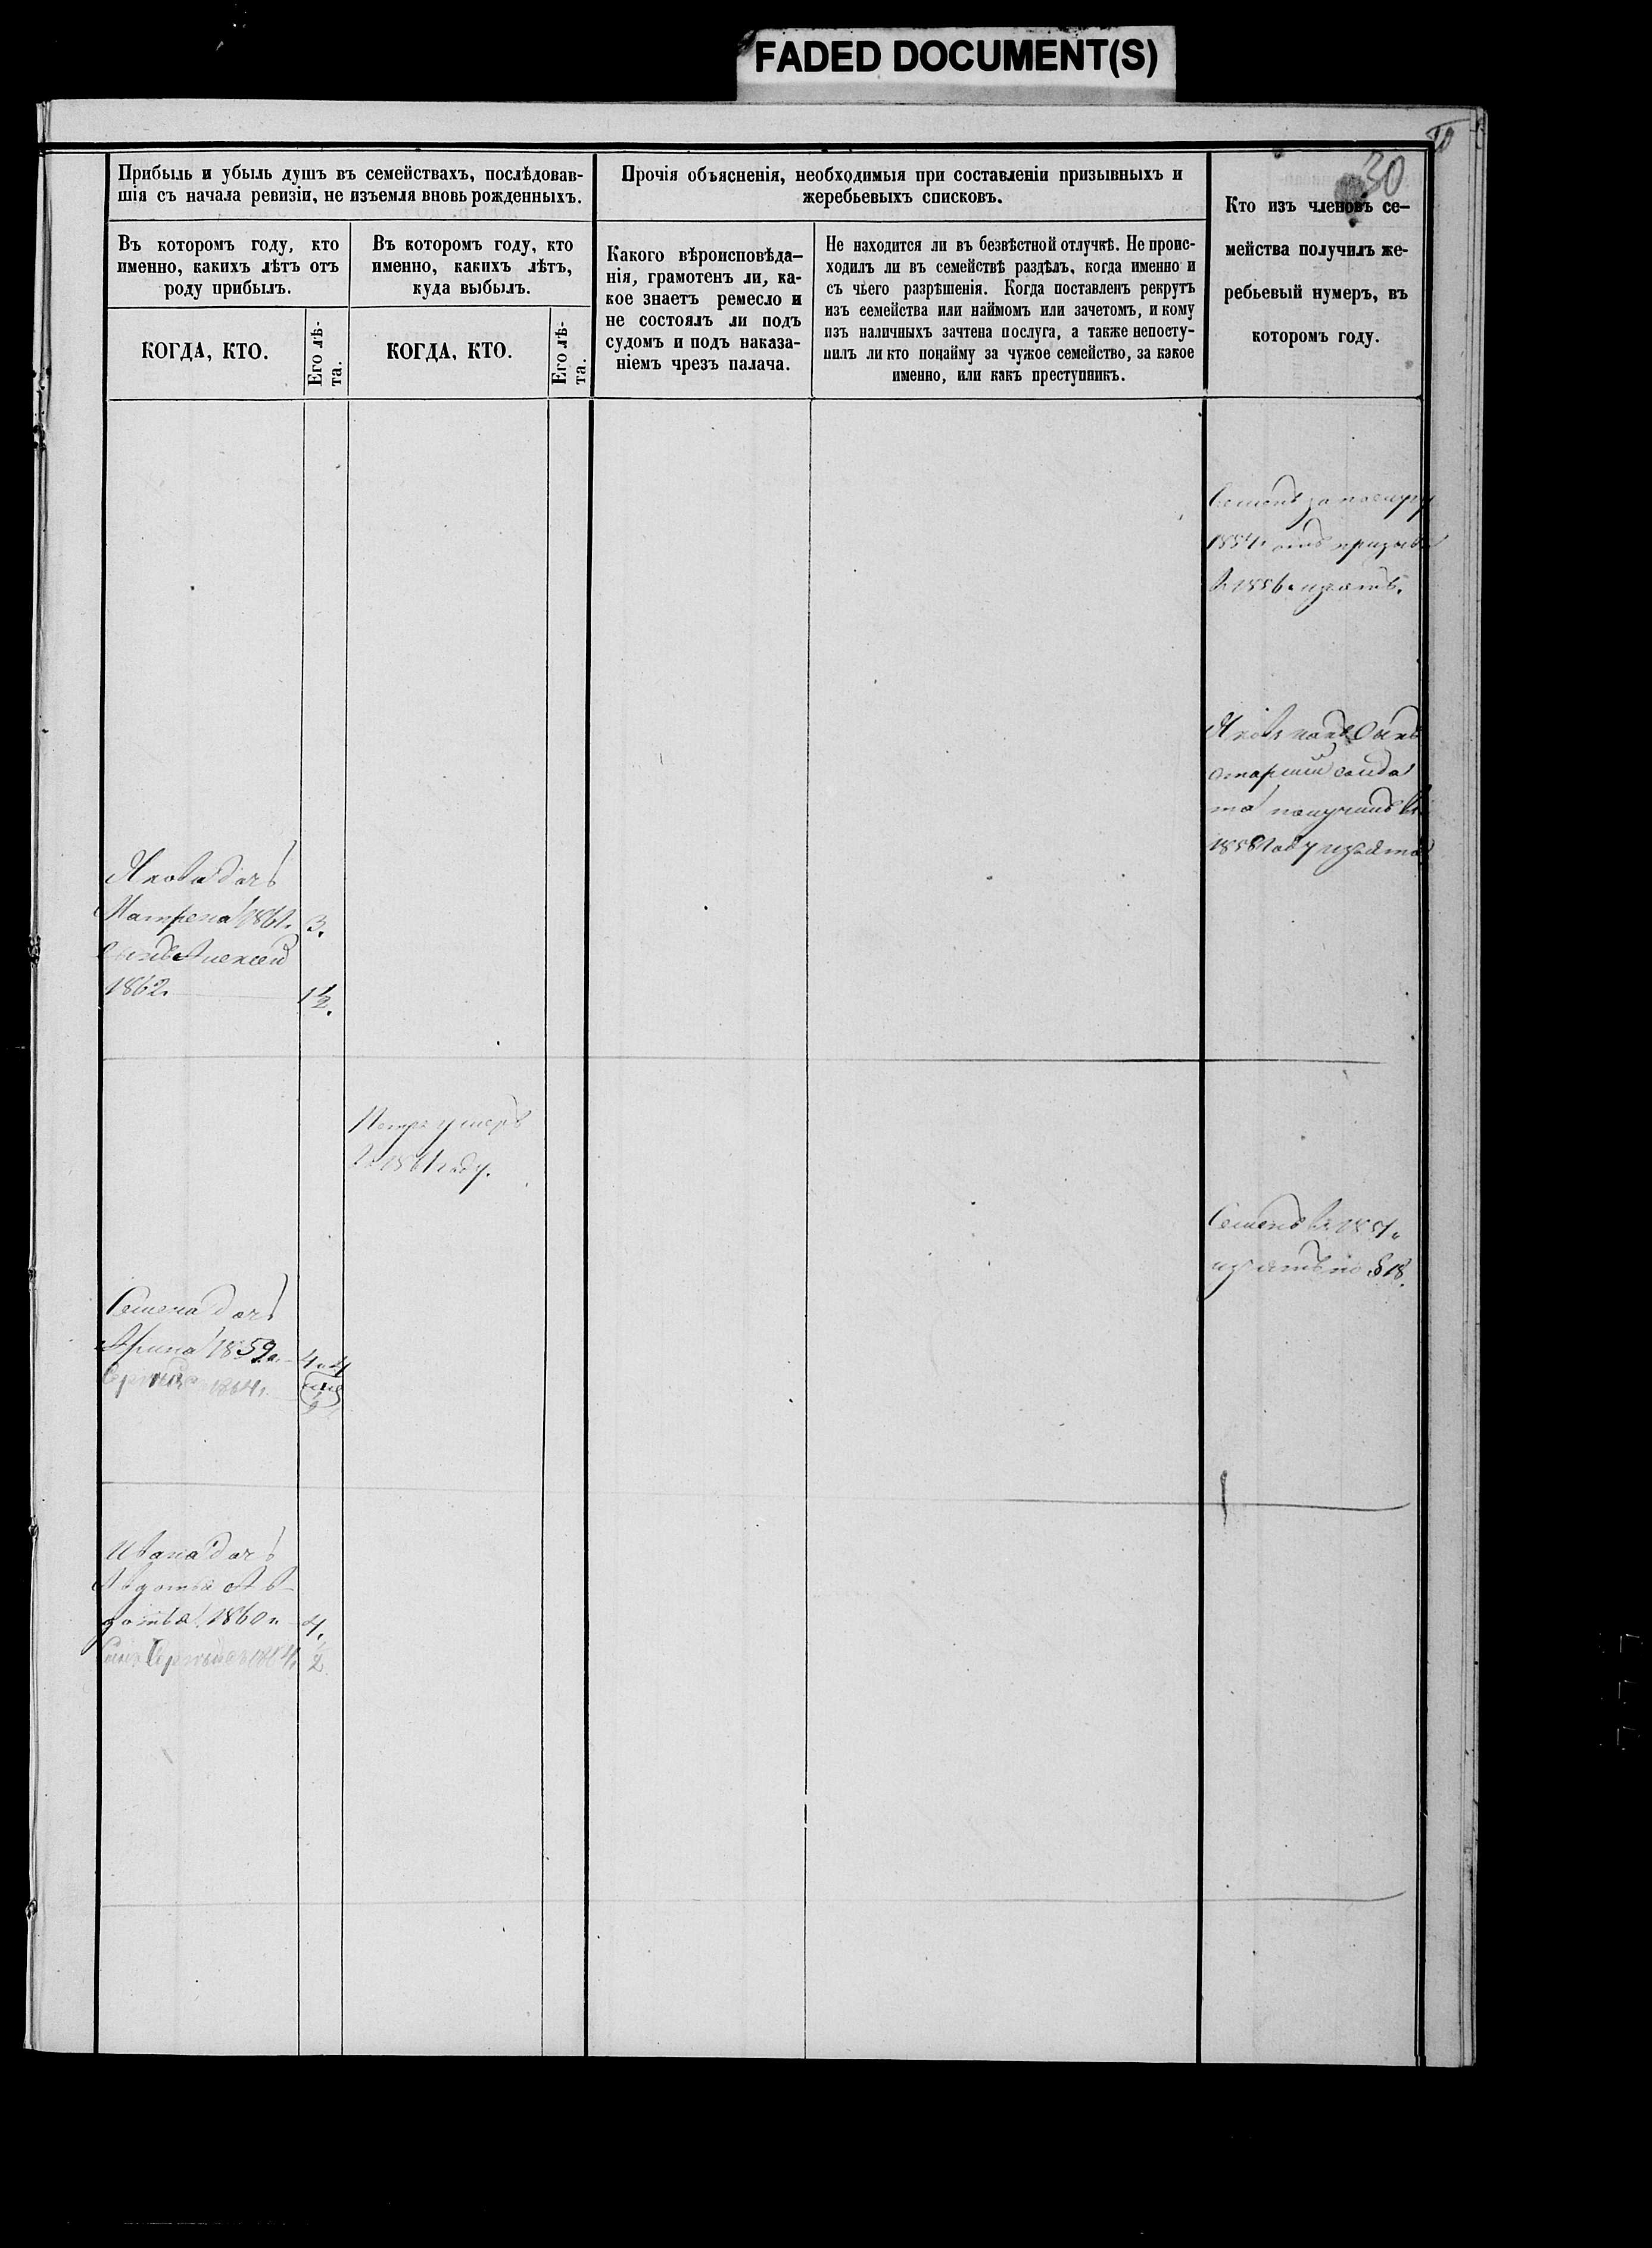 FADED DOCUMENT(S)
30
Прибыль и убыль душъ въ семействахъ, послѣдовав-
шія съ начала ревизіи, не изъемля вновь рожденныхъ.
Въ которомъ году, кто
именно, какихъ лѣтъ отъ
роду прибылъ.
КОГДА, КТО.
Его лѣ-
та.
Въ которомъ году, кто
именно, какихъ лѣтъ,
куда выбылъ.
КОГДА, КТО.
Его лѣ-
та.
Прочія объясненія, необходимыя при составленіи призывныхъ и
жеребьевыхъ списковъ.
Какого вѣроисповѣда-
нія, грамотенъ ли, ка-
кое знаетъ ремесло и
не состоялъ ли подъ
судомъ и подъ наказа-
ніемъ чрезъ палача.
Не находится ли въ безвѣстной отлучкѣ. Не проис-
ходилъ ли въ семействѣ раздѣлъ, когда именно и
съ чьего разрѣшенія. Когда поставленъ рекрутъ
изъ семейства или наймомъ или зачетомъ, и кому
изъ наличныхъ зачтена послуга, а также непосту-
пилъ ли кто понайму за чужое семейство, за какое
именно, или какъ преступникъ.
Кто изъ членовъ се-
мейства получилъ же-
ребьевый нумеръ, въ
которомъ году.
Семенъ за послугу
1854. отъ призыва
въ 1856. изъятъ.
Яковъ какъ сынъ
старшій солда
та получилъ въ
1858 году изъятіе
Якова дочь
Матрена 1861. 3.
сынъ Алексей
1862. 1½.
Петръ умеръ
въ 1861 году.
Семенъ въ 1854.
изъятъ по §18.
Семена дочь
Арина 1859. 4
Сергей 1864.
Ивана дочь
Авдотья
1860. 4.
Сынъ Сергей 1864. ½